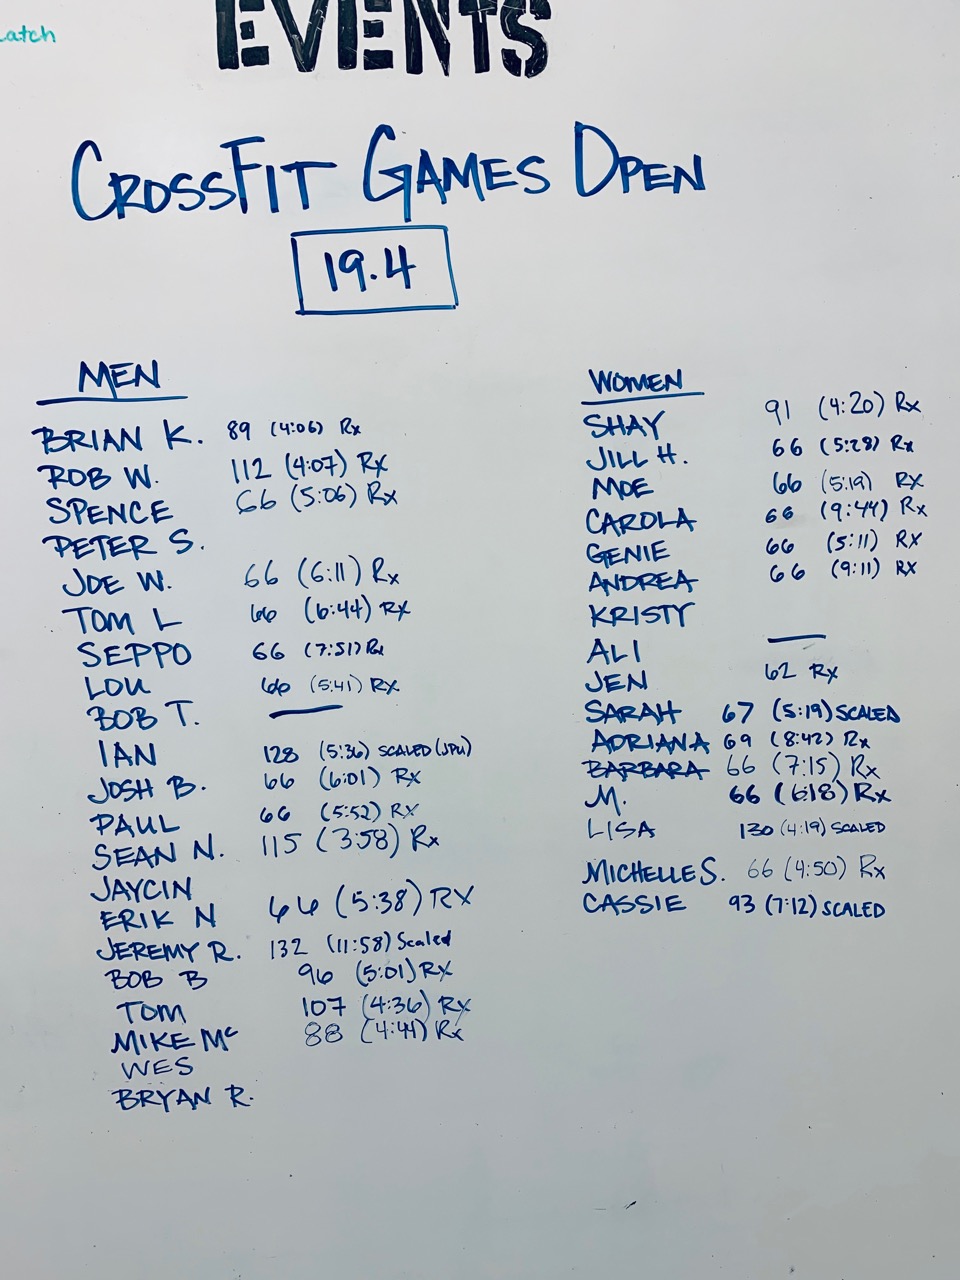 Latch
EVENTS
CROSSFIT GAMES OPEN
19.4
MEN
BRIAN K. 89 (4:06) Rx
ROB W. 112 (4:07) Rx
SPENCE 66 (5:06) Rx
PETER S.
JOE W. 66 (6:11) Rx
TOM L 66 (6:44) RX
SEPPO 66 (7:51) Rx
LOU 66 (5:41) RX
BOB T.
IAN 128 (5:36) SCALED (JPU)
JOSH B. 66 (6:01) RX
PAUL 66 (5:52) RX
SEAN N. 115 (3:58) Rx
JAYCIN
ERIK N 66 (5:38) RX
JEREMY R. 132 (11:58) Scaled
BOB B 96 (5:01) RX
TOM 107 (4:36) RX
MIKE Mc 88 (4:44) Rx
WES
BRYAN R.
WOMEN
SHAY 91 (4:20) Rx
JILL H. 66 (5:28) Rx
MOE 66 (5:19) RX
CAROLA 66 (9:44) Rx
GENIE 66 (5:11) RX
ANDREA 66 (9:11) RX
KRISTY
ALI
JEN 62 RX
SARAH 67 (5:19) SCALED
ADRIANA 69 (8:42) Rx
BARBARA 66 (7:15) RX
M. 66 (6:18) Rx
LISA 130 (4:19) SCALED
MICHELLE S. 66 (4:50) Rx
CASSIE 93 (7:12) SCALED